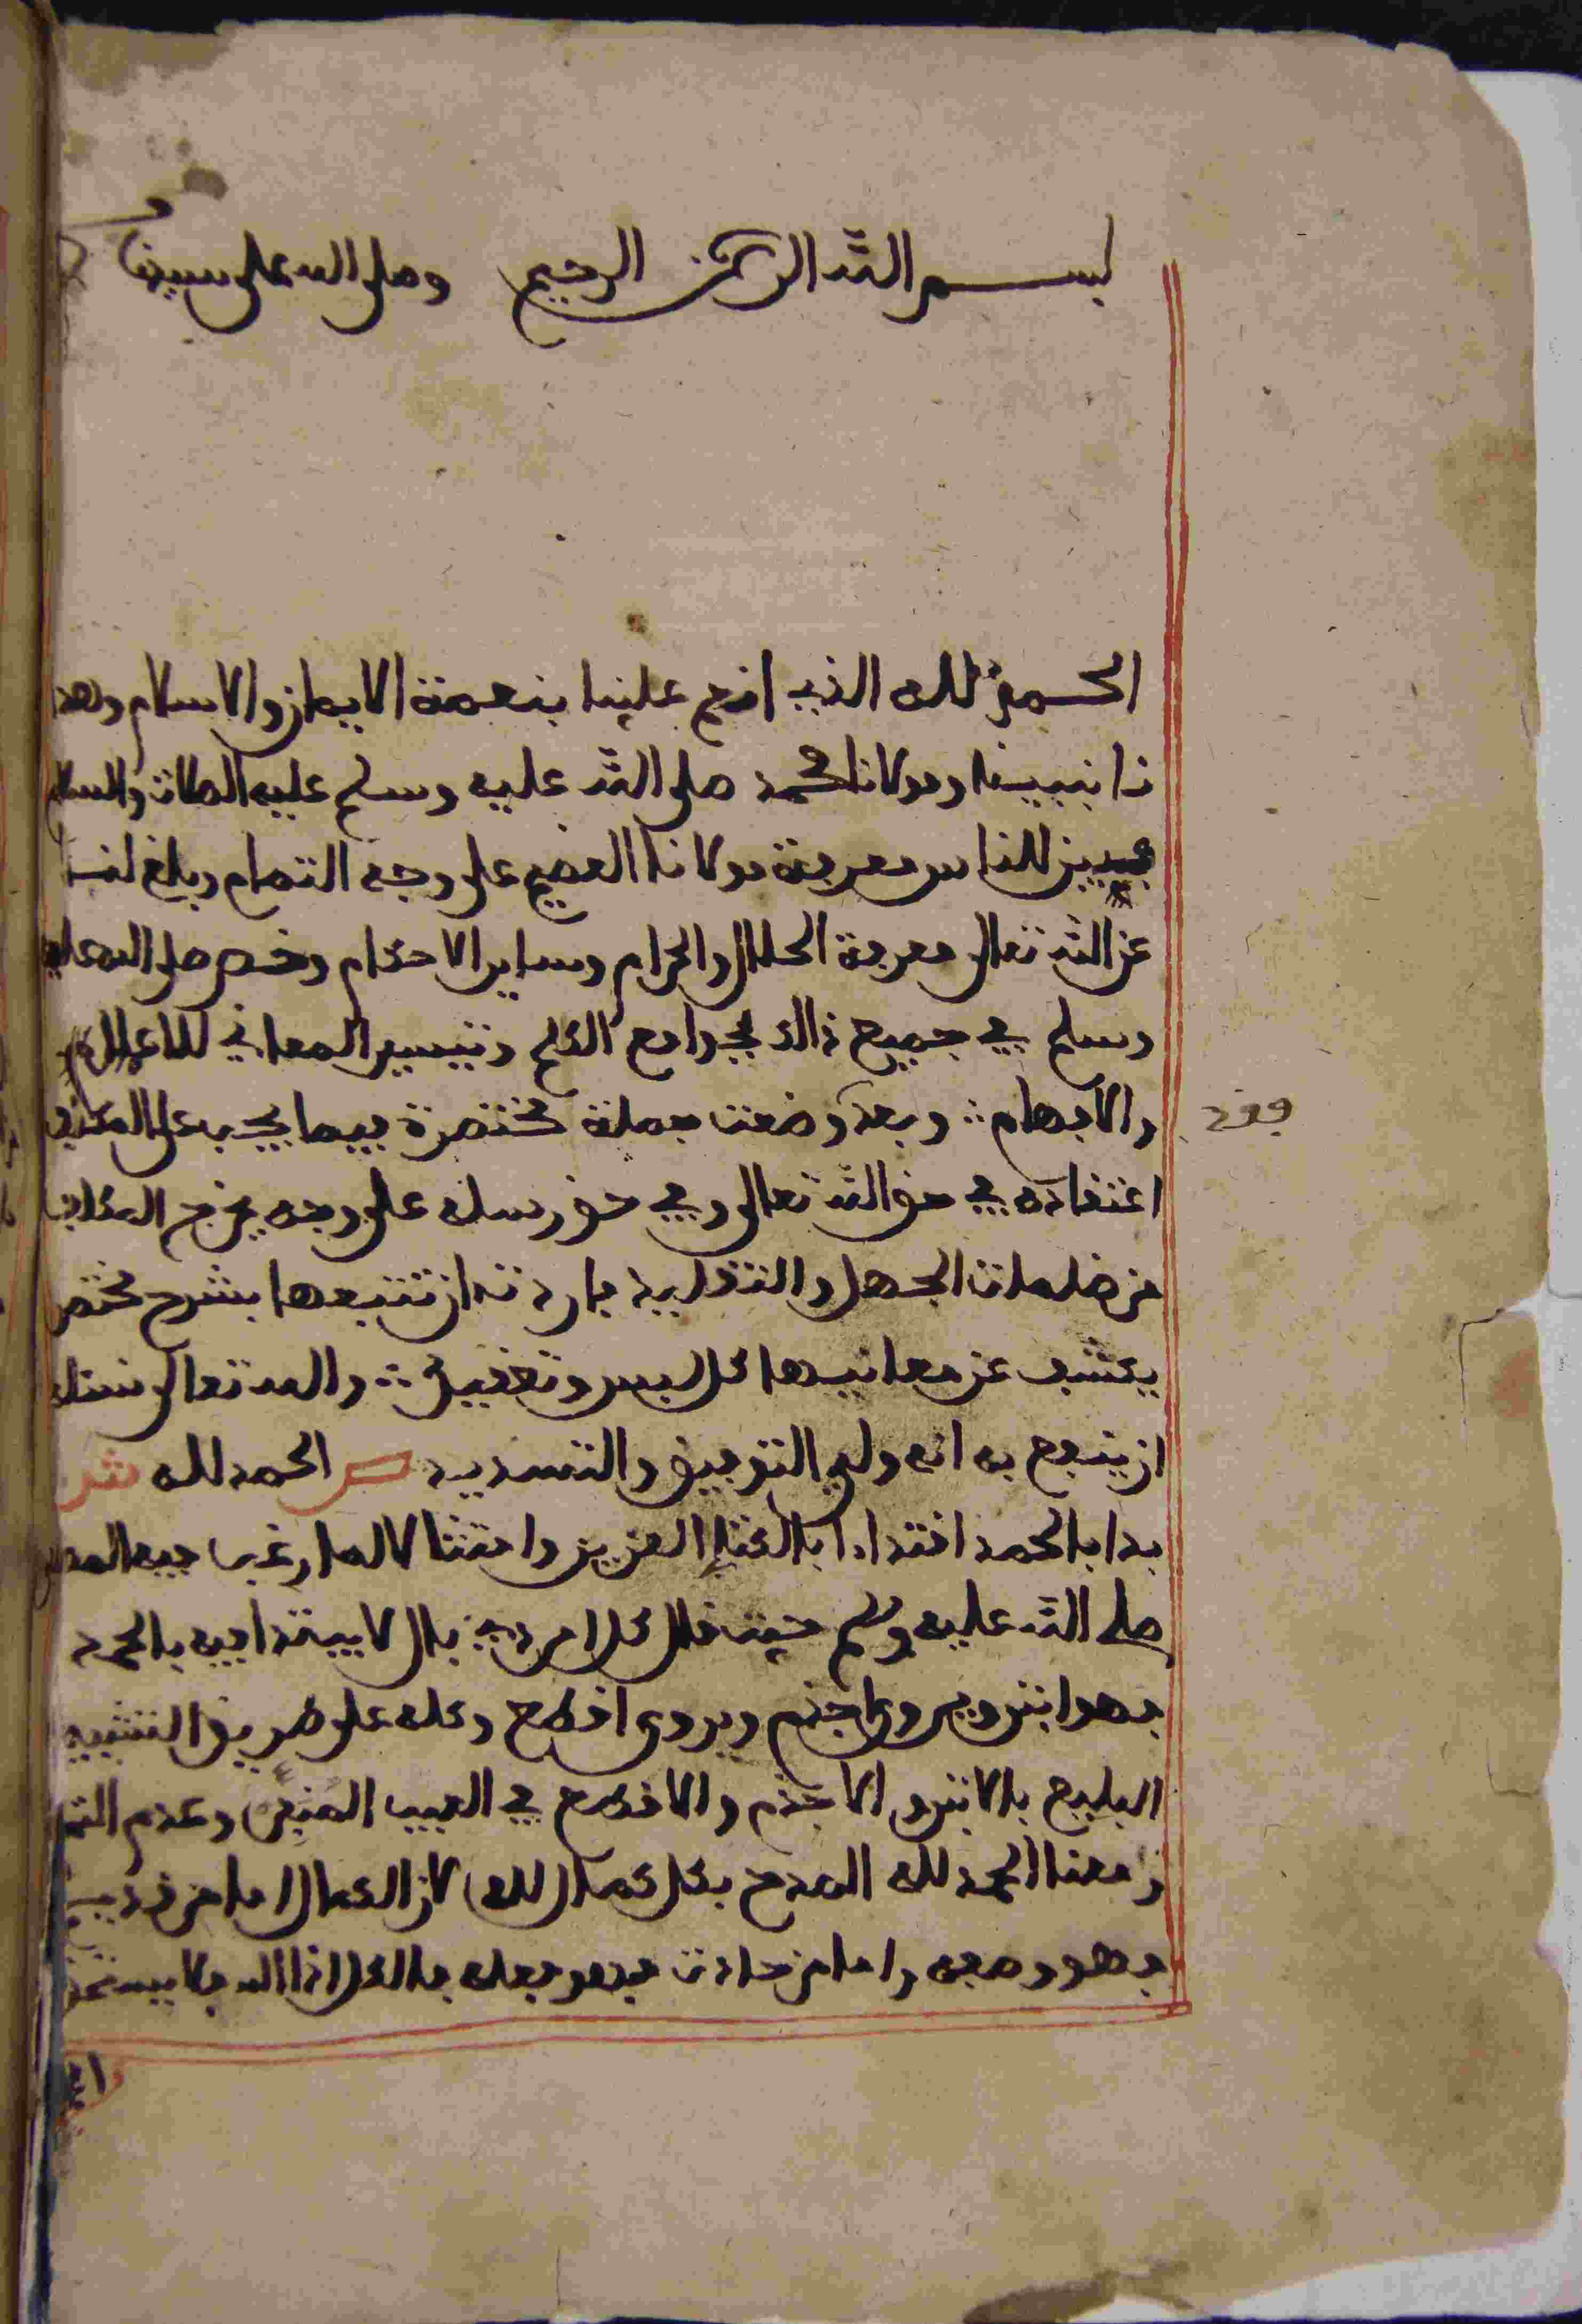 بسم الله الرحمن الرحيم وصلى الله على سيدنا
الحمد لله الذي انعم علينا بنعمة الايمان والاسلام وهد
نا نبيينا ومولانا محمد صلى الله عليه وسلم عليه الصلاة والسلام
فبين للناس معرفة مولانا العظيم على وجه التمام وبلغ لنا
عن الله تعالى معرفة الحلال والحرام وساير الاحكام وخص صلى الله عليه
وسلم في جميع ذالك بجوامع الكلم وتيسير المعاني للاعلام
والافهام وبعد وضعت جملة مختصرة فيما يجب على المكلف
فقد
اعتقاده في حق الله تعالى وفي حق رسله على وجه يخرج المكلف
من ظلمات الجهل والتقليد فاردت ان نتبعها بشرح مختصر
يكشف عن معانيها كل لبس وتعقيد والله تعالى نسئل
ان ينفع به انه ولي التوفيق والتسديد ص الحمد لله ش
بدا بالحمد اقتداءا بالكتاب العزيز وامتثالا لما رغب فيه المصطفى
صلى الله عليه وسلم حيث قال كل امر ذي بال لا يبتدا فيه بالحمد
فهو ابتر ويروى اجذم ويروى اقطع وكله على طريق التشبيه
البليغ بالابتر والاجذم والاقطع في العيب المنفر وعدم التما
م معنا الحمد لله المدح بكل كمال لله لان الكمال اما من قديم
فهو وصفه واما من حادث فهو فعله فالكل اذا لله فلا يستحق